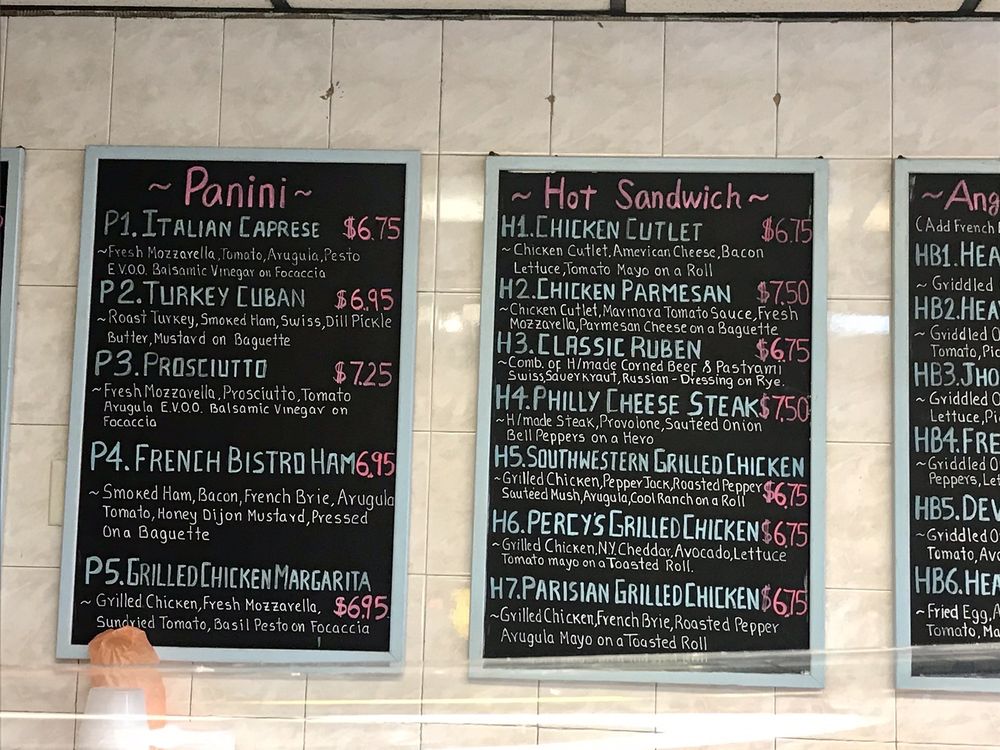 ~ Panini ~
P1. ITALIAN CAPRESE $6.75
~Fresh Mozzarella, Tomato, Arugula, Pesto
E.V.O.O. Balsamic Vinegar on Focaccia
P2. TURKEY CUBAN $6.95
~Roast Turkey, Smoked Ham, Swiss, Dill Pickle
Butter, Mustard on Baguette
P3. PROSCIUTTO $7.25
~Fresh Mozzarella, Prosciutto, Tomato
Arugula E.V.O.O. Balsamic Vinegar on
Focaccia
P4. FRENCH BISTRO HAM 6.95
~ Smoked Ham, Bacon, French Brie, Arugula
Tomato, Honey Dijon Mustard, Pressed
On a Baguette
P5. GRILLED CHICKEN MARGARITA
~ Grilled Chicken, Fresh Mozzarella, $6.95
Sundried Tomato, Basil Pesto on Focaccia
~ Hot Sandwich ~
H1. CHICKEN CUTLET $6.75
~Chicken Cutlet, American Cheese, Bacon
Lettuce, Tomato Mayo on a Roll
H2. CHICKEN PARMESAN $7.50
~Chicken Cutlet, Marinara Tomato Sauce, Fresh
Mozzarella, Parmesan Cheese on a Baguette
H3. CLASSIC RUBEN $6.75
~Comb. of H/made Corned Beef & Pastrami
Swiss, Sauerkraut, Russian - Dressing on Rye.
H4. PHILLY CHEESE STEAK $7.50
~H/made Steak, Provolone, Sautéed Onion
Bell Peppers on a Hero
H5. SOUTHWESTERN GRILLED CHICKEN
~Grilled Chicken, Pepper Jack, Roasted Pepper
Sautéed Mush, Arugula, Cool Ranch on a Roll $6.75
H6. PERCY'S GRILLED CHICKEN $6.75
~Grilled Chicken, NY. Cheddar, Avocado, Lettuce
Tomato mayo on a Toasted Roll.
H7. PARISIAN GRILLED CHICKEN $6.75
~Grilled Chicken, French Brie, Roasted Pepper
Arugula Mayo on a Toasted Roll
~Ang
(Add French
HB1. HEA
~ Griddled
HB2. HEA
~Griddled O
Tomato, Pic
HB3. JHO
~ Griddled O
Lettuce, Pi
HB4. FRE
~Griddled O
Peppers, Let
HB5. DEV
~Griddled O
Tomato, Avo
HB6. HEA
~Fried Egg, A
Tomato, Ma